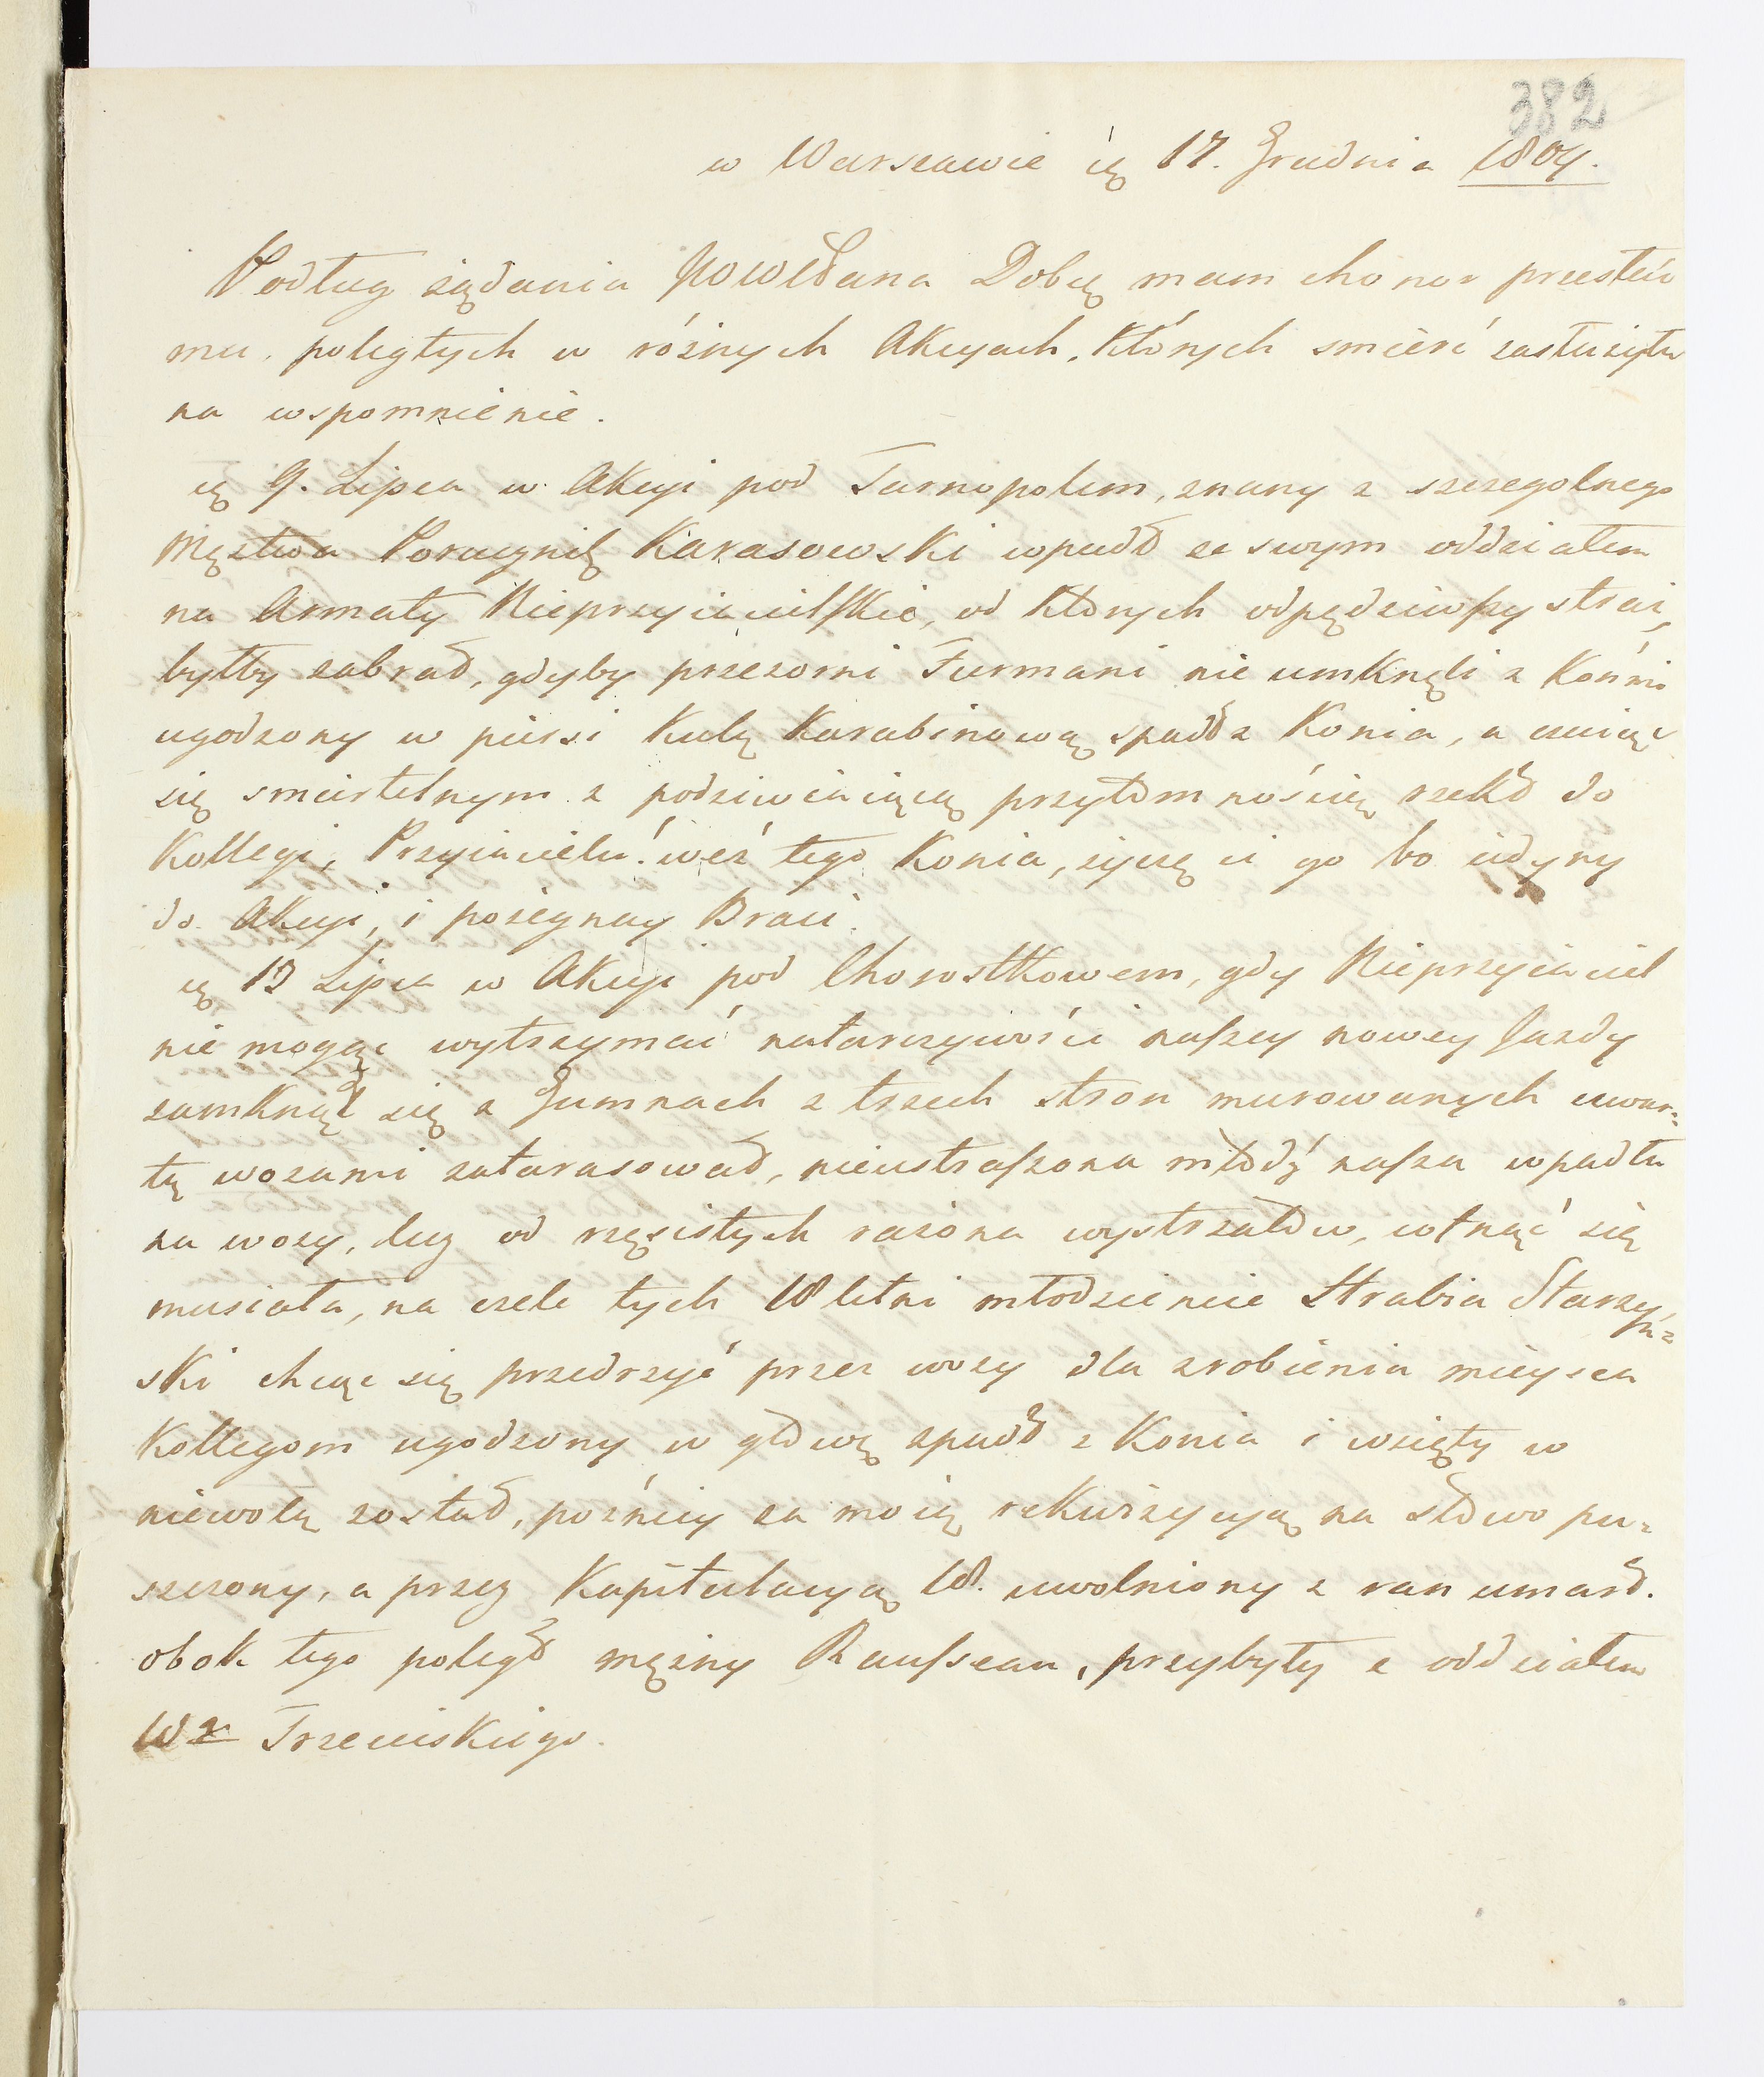 382
w Warszawie ię 17. Grudnia 1809.
Podług żądania JWWPana Dobcę mam chonor przesłać
mu, poległych w różnych Akcyach, których smierć zasłużyła
na wspomnienie.
ię 9. Lipca w Akcyi pod Tarnopolem, znany z szczegolnego
Męztwa Porucznik Karasowski wpadł ze swym oddziałem
na Armaty Nieprzyiacielskie, od ktorych odpędziwszy straż,
byłby zabrał, gdyby przezorni Furmani nie umknęli z Końmi
ugodzony w piersi kulą Karabinową spadł z Konia, a czuiąc
się smiertelnym z podziwiaiącą przytomnością rzekł do
Kollegi, Przyiacielu! weź tego Konia, życzę ci go bo iedyny
do Akcyi, i pożegnay Braci.
ię 17 Lipca w Akcyi pod Chorostkowem, gdy Nieprzyiaciel
nie mogąc wytrzymać natarczywości naszey nowey Jazdy
zamknął się z Gumnach z trzech stron murowanych czwar-
tą wozami zatarasował, nieustraszona młodź nasza wpadła
na wozy, lecz od rzęsistych rażona wystrzałów, cofnąć się
musiała, na czele tych 18 letni młodzieniec Hrabia Starzyń-
ski chcąc się przedrzyć przez wozy dla zrobienia mieysca
Kollegom ugodzony w głowę spadł z Konia i wzięty w
niewolą został, poźniey za moią rekwizycyą na słowo pu-
szczony, a przez Kapitulacyą W. uwolniony z ran umarł.
obok tego poległ mężny Rousseau, przybyły z oddziałem
Wgo Trzecieskiego.